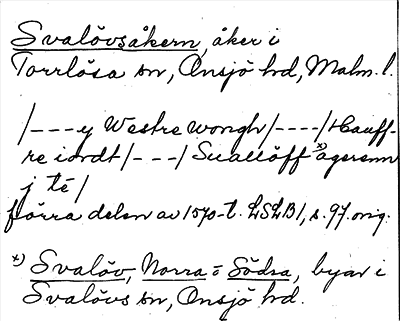 Svalövsåkern, åker i
Torrlösa sn, Onsjö hd, Malm. l.
/---y Westre wongh/----/Hauff-
re iordt/---/Suallöff *) agerenn
j té/
förra delen av 1570-t. LSLB1, s. 97. orig.
*) Svalöv, Norra o Södra, byar i
Svalövs sn, Onsjö hd.